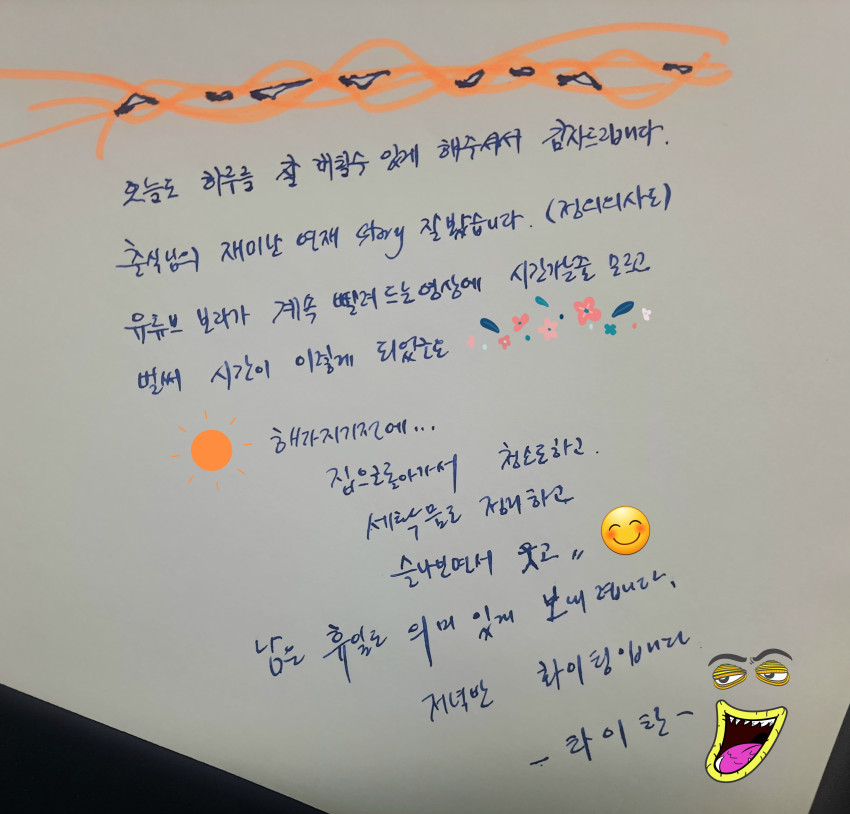 오늘도 하루를 잘 버틸수 있게 해주셔서 감사드립니다.
춘식님의 재미난 연재 story 잘 봤습니다. (정의의사도)
유튜브 보라가 계속 빨려드는영상에 시간가는줄 모르고
벌써 시간이 이렇게 되었군요
해가지기전에...
집으로돌아가서 청소도하고.
세탁물도 정리하고
슬나보면서 웃고〃
남은 휴일도 의미 있게 보내렵니다.
저녁반 화이팅입니다
- 라이탄 -